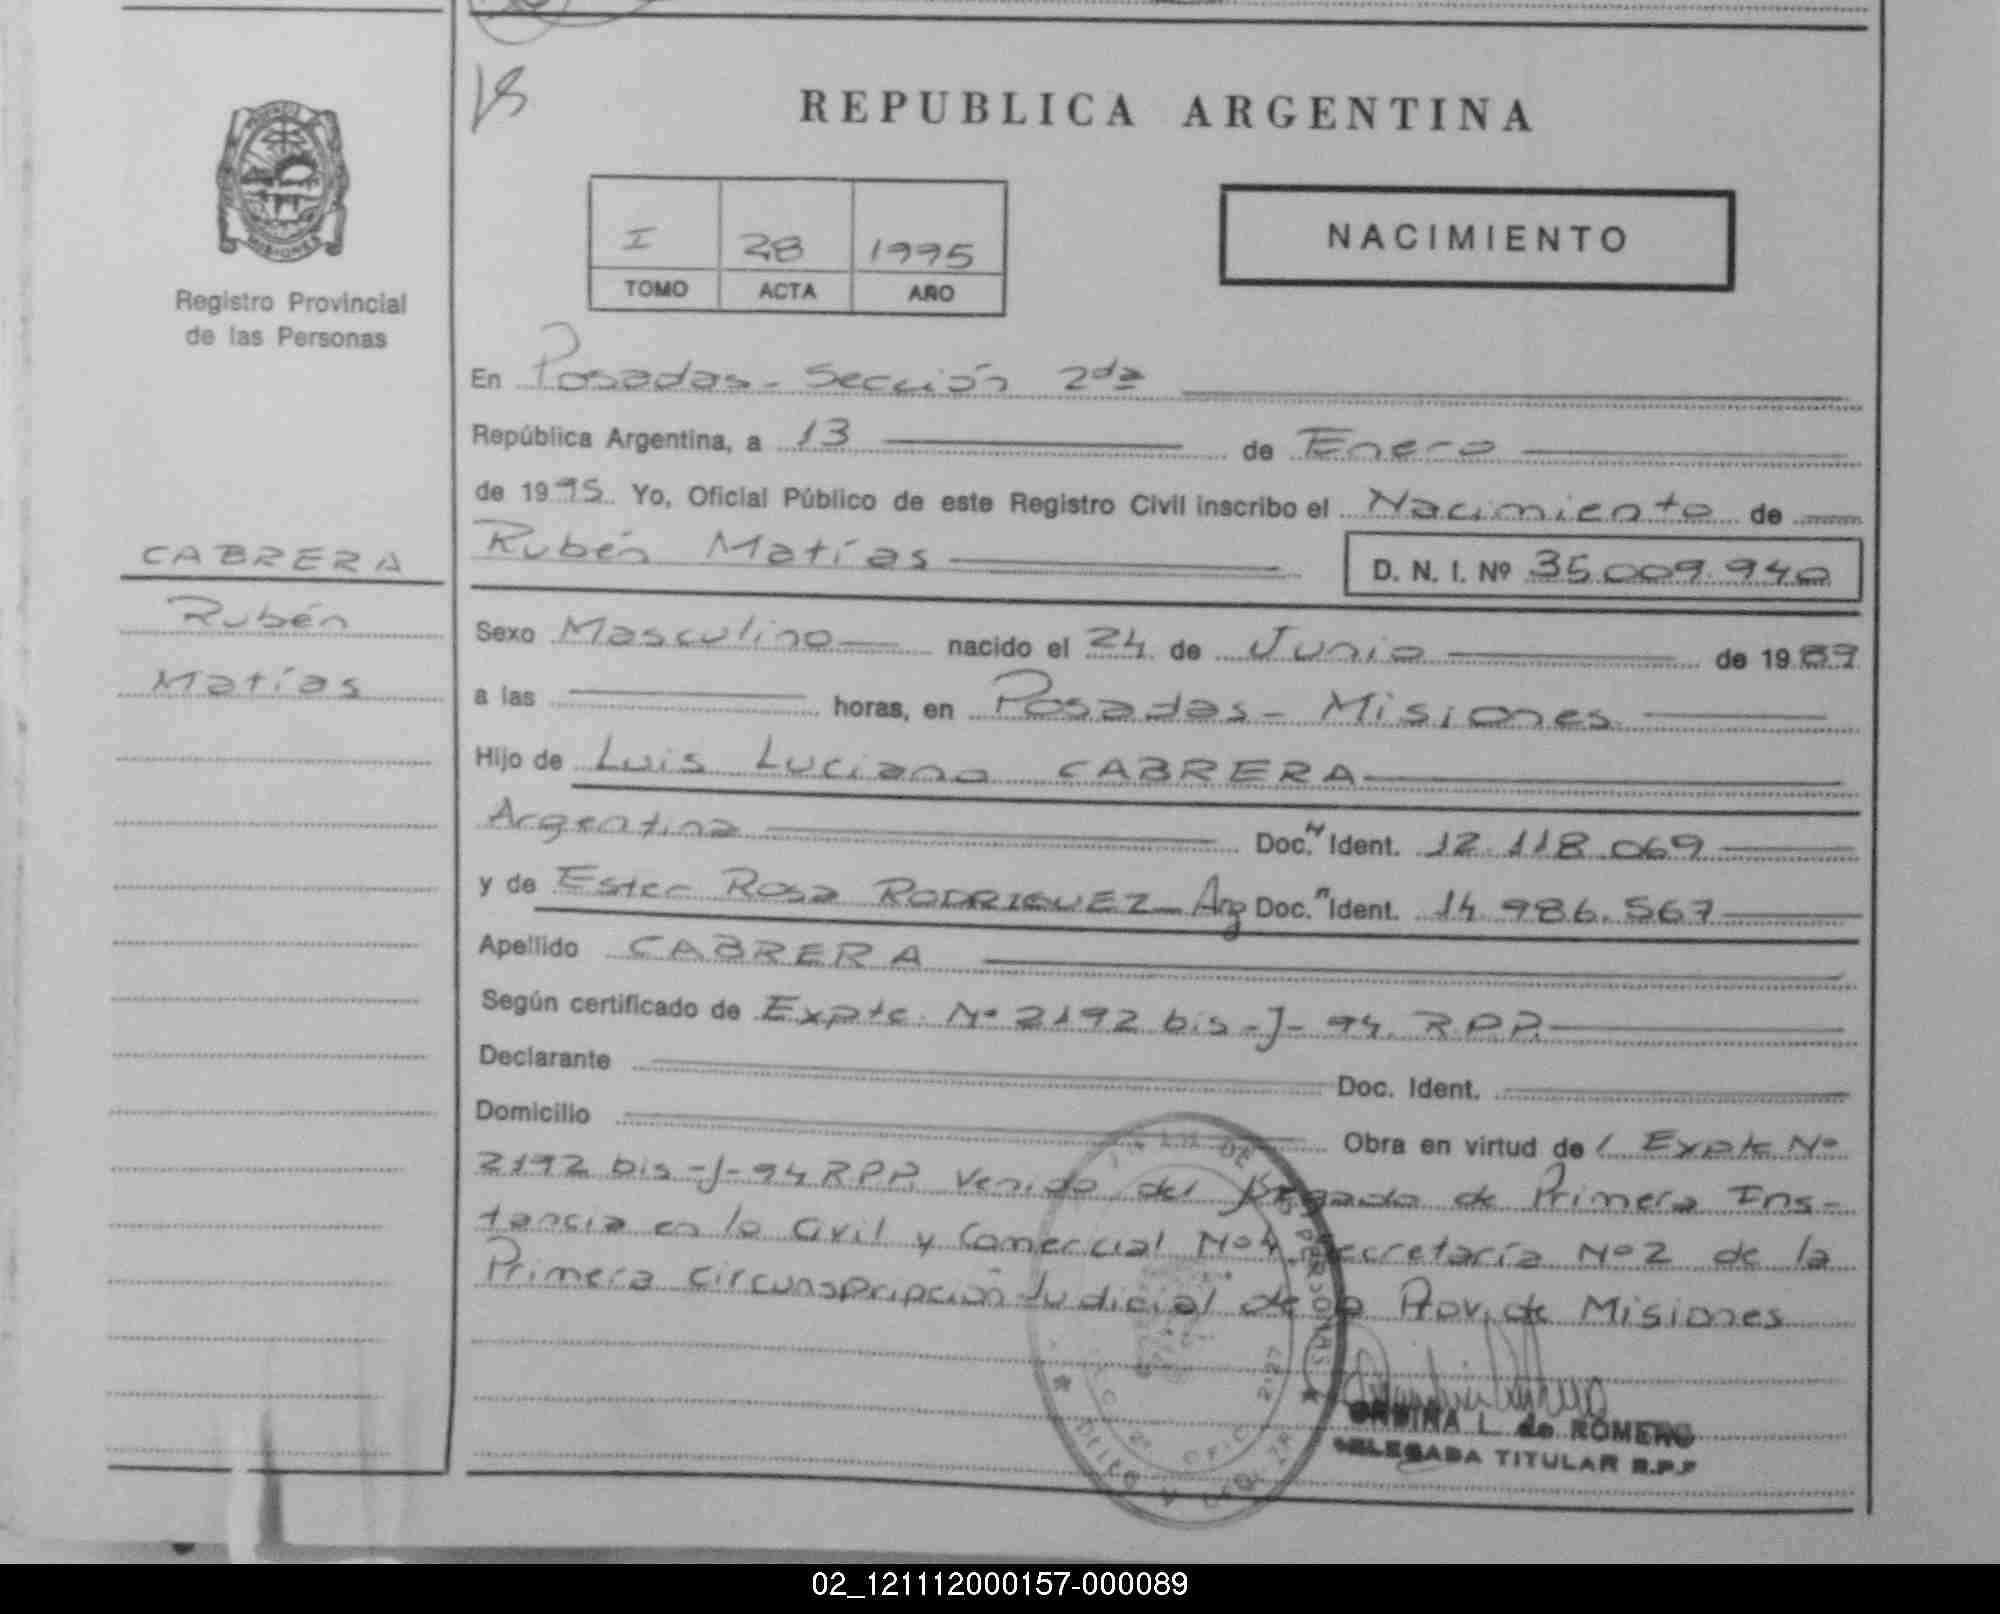 REPUBLICA ARGENTINA
MISIONES
Registro Provincial
de las Personas
I 28 1995
TOMO ACTA AÑO
NACIMIENTO
En Posadas - Sección 2da
República Argentina, a 13 de Enero
de 1995 Yo, Oficial Público de este Registro Civil inscribo el Nacimiento de
Rubén Matías D. N. I. Nº 35.009.940
CABRERA
Rubén
Matías
Sexo Masculino nacido el 24 de Junio de 1989
a las horas, en Posadas - Misiones
Hijo de Luis Luciano CABRERA
Argentina Doc. Ident. 12.118.069
y de Ester Rosa RODRIGUEZ Arg Doc. Ident. 14.986.567
Apellido CABRERA
Según certificado de Expte. Nº 2192 bis-J-94. RPP.
Declarante Doc. Ident.
Domicilio Obra en virtud de Expte Nº
2192 bis-J-94 RPP. Venido del Juzgado de Primera Ins-
tancia en lo Civil y Comercial Nº4 Secretaría Nº2 de la
Primera circunspripción Judicial de la Prov. de Misiones
L. de ROMERO
DELEGADA TITULAR R.P.P
02_121112000157-000089